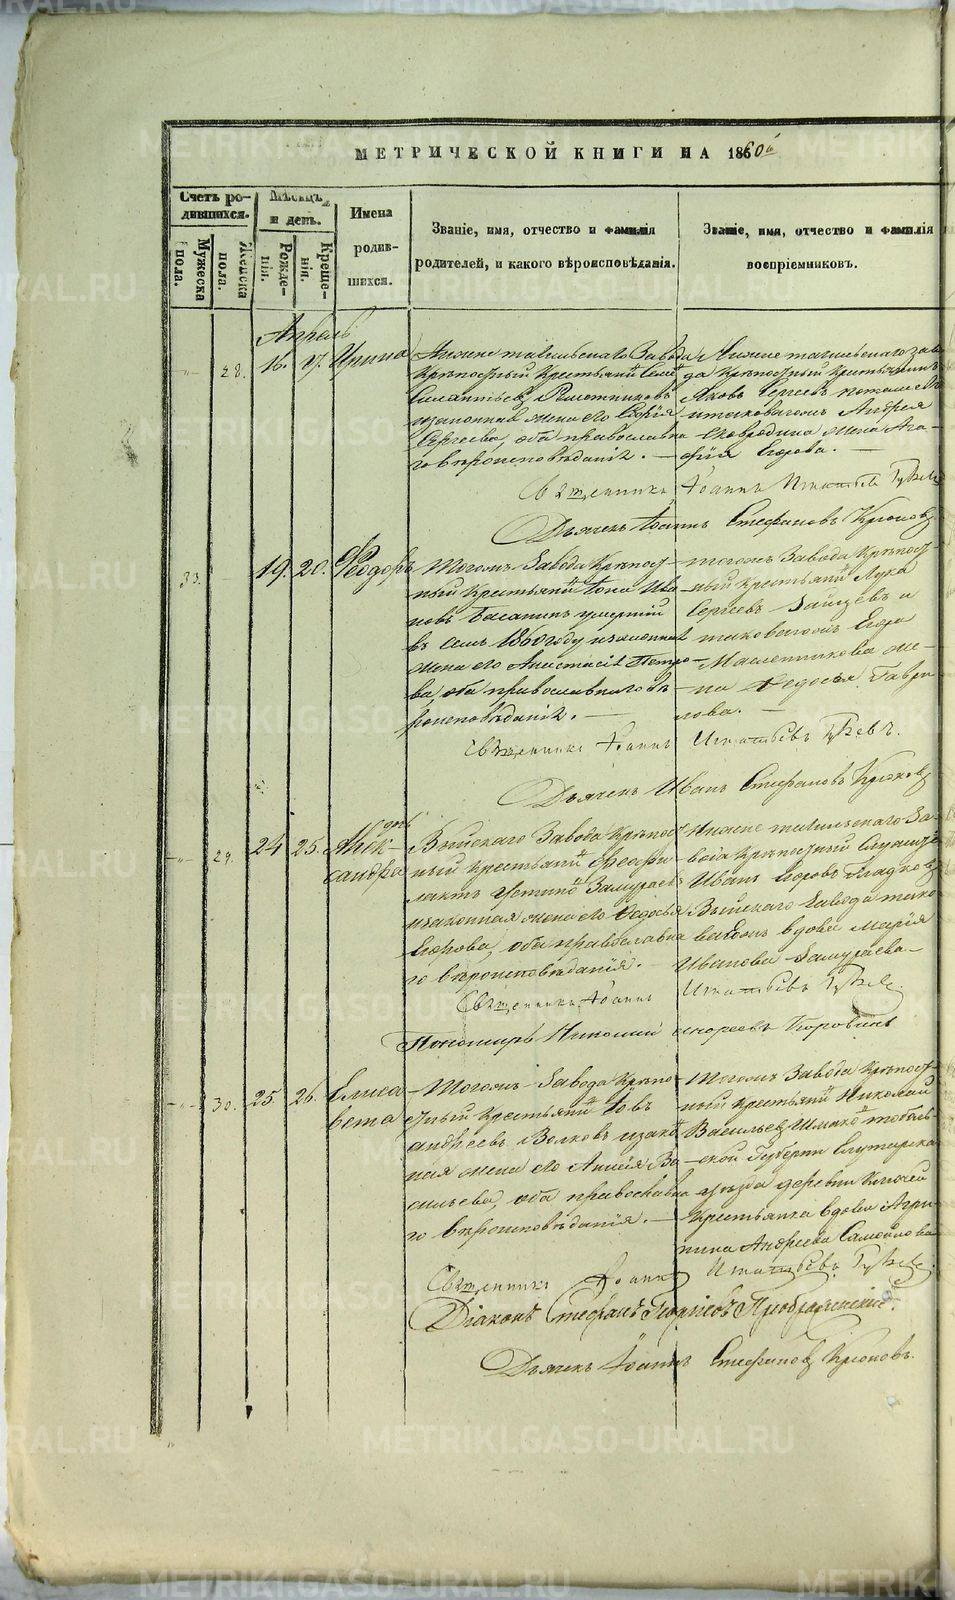 МЕТРИЧЕСКОЙ КНИГИ НА 1860й
Счетъ ро-
дившихся.
Мужеска
пола.
Женска
пола.
Мѣсяцъ
и день.
Рожде-
нія.
Креще-
нія.
Имена
родив-
шихся.
Званіе, имя, отчество и фамилія
родителей, и какого вѣроисповѣданія.
Званіе, имя, отчество и фамилія
воспріемниковъ.
Апрѣль
28. 16. 17. Ирина
Нижнетагильскаго Завода
крѣпостный крестьянинъ
законная жена его Софія
Сергеева, оба православна-
го вѣроисповѣданія. —
Нижнетагильскаго заво-
да крѣпостный крестьянинъ
Яковъ Сергеевъ
таковагожъ Андрея
Сковродина жена Ага-
фія Егорова. —
Священникъ Іоаннъ Игнатьевъ
Дьячекъ Іоаннъ Стефановъ Крюковъ
33. 19. 20. Ѳеодоръ
Тогожъ Завода крѣпост-
ный крестьянинъ Іона Ива-
новъ Басанинъ умершій
въ семъ 1860 году и законная
жена его Анастасія Петро-
ва, оба православнаго вѣ-
роисповѣданія. —
тогожъ Завода крѣпост-
ный крестьянинъ Лука
Сергеевъ Зайцевъ и
таковагожъ Егора
Масленникова же-
на Ѳедосья Гаври-
лова. —
Священникъ Іоаннъ Игнатьевъ
Дьячекъ Иванъ Стефановъ Крюковъ
29. 24. 25. Алек-
сандра
дочь
Выйскаго Завода крѣпост-
ный крестьянинъ Феофи-
лактъ Устиновъ Замураевъ
и законная жена его Ѳедосья
Егорова, оба православна-
го вѣроисповѣданія. —
Нижнетагильскаго За-
вода крѣпостный
Иванъ Егоровъ Гладковъ
Выйскаго Завода тако-
ваяжъ вдова Марія
Иванова Замураева —
Священникъ Іоаннъ Игнатьевъ
Пономарь Николай Андреевъ Коровинъ
30. 25. 26. Елиса-
вета
Тогожъ Завода крѣпо-
стный крестьянинъ Іовъ
Андреевъ Волковъ и закон-
ная жена его Анисія Ва-
сильева, оба православна-
го вѣроисповѣданія. —
Тогожъ Завода крѣпост-
ный крестьянинъ Николай
Васильевъ Тоболь-
ской Губерніи
уѣзда деревни Ключей
крестьянка вдова Агри-
пина Андреева Самойлова
Священникъ Іоаннъ Игнатьевъ
Діаконъ Стефанъ Георгіевъ Преображенскій.
Дьячекъ Іоаннъ Стефановъ Крюковъ.
METRIKI.GASO-URAL.RU